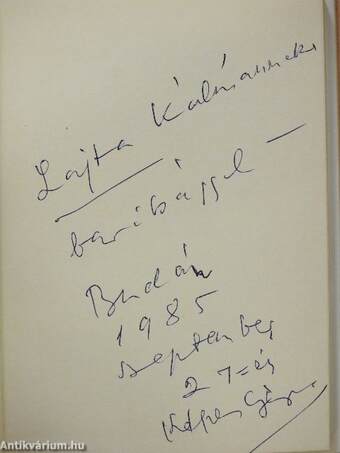 Lajta Kálmánnak
barátsággal —
Budán
1985
szeptember
27-én
Képes Géza
Antikvárium.hu